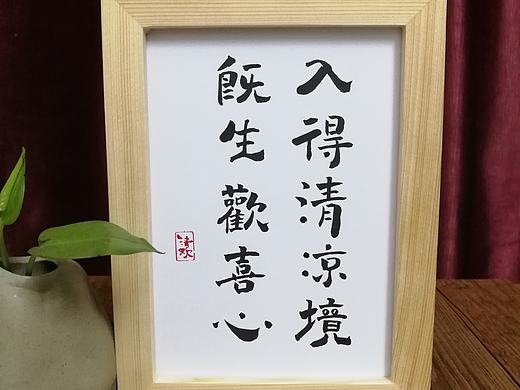 入得清凉境
既生歡喜心
清欢